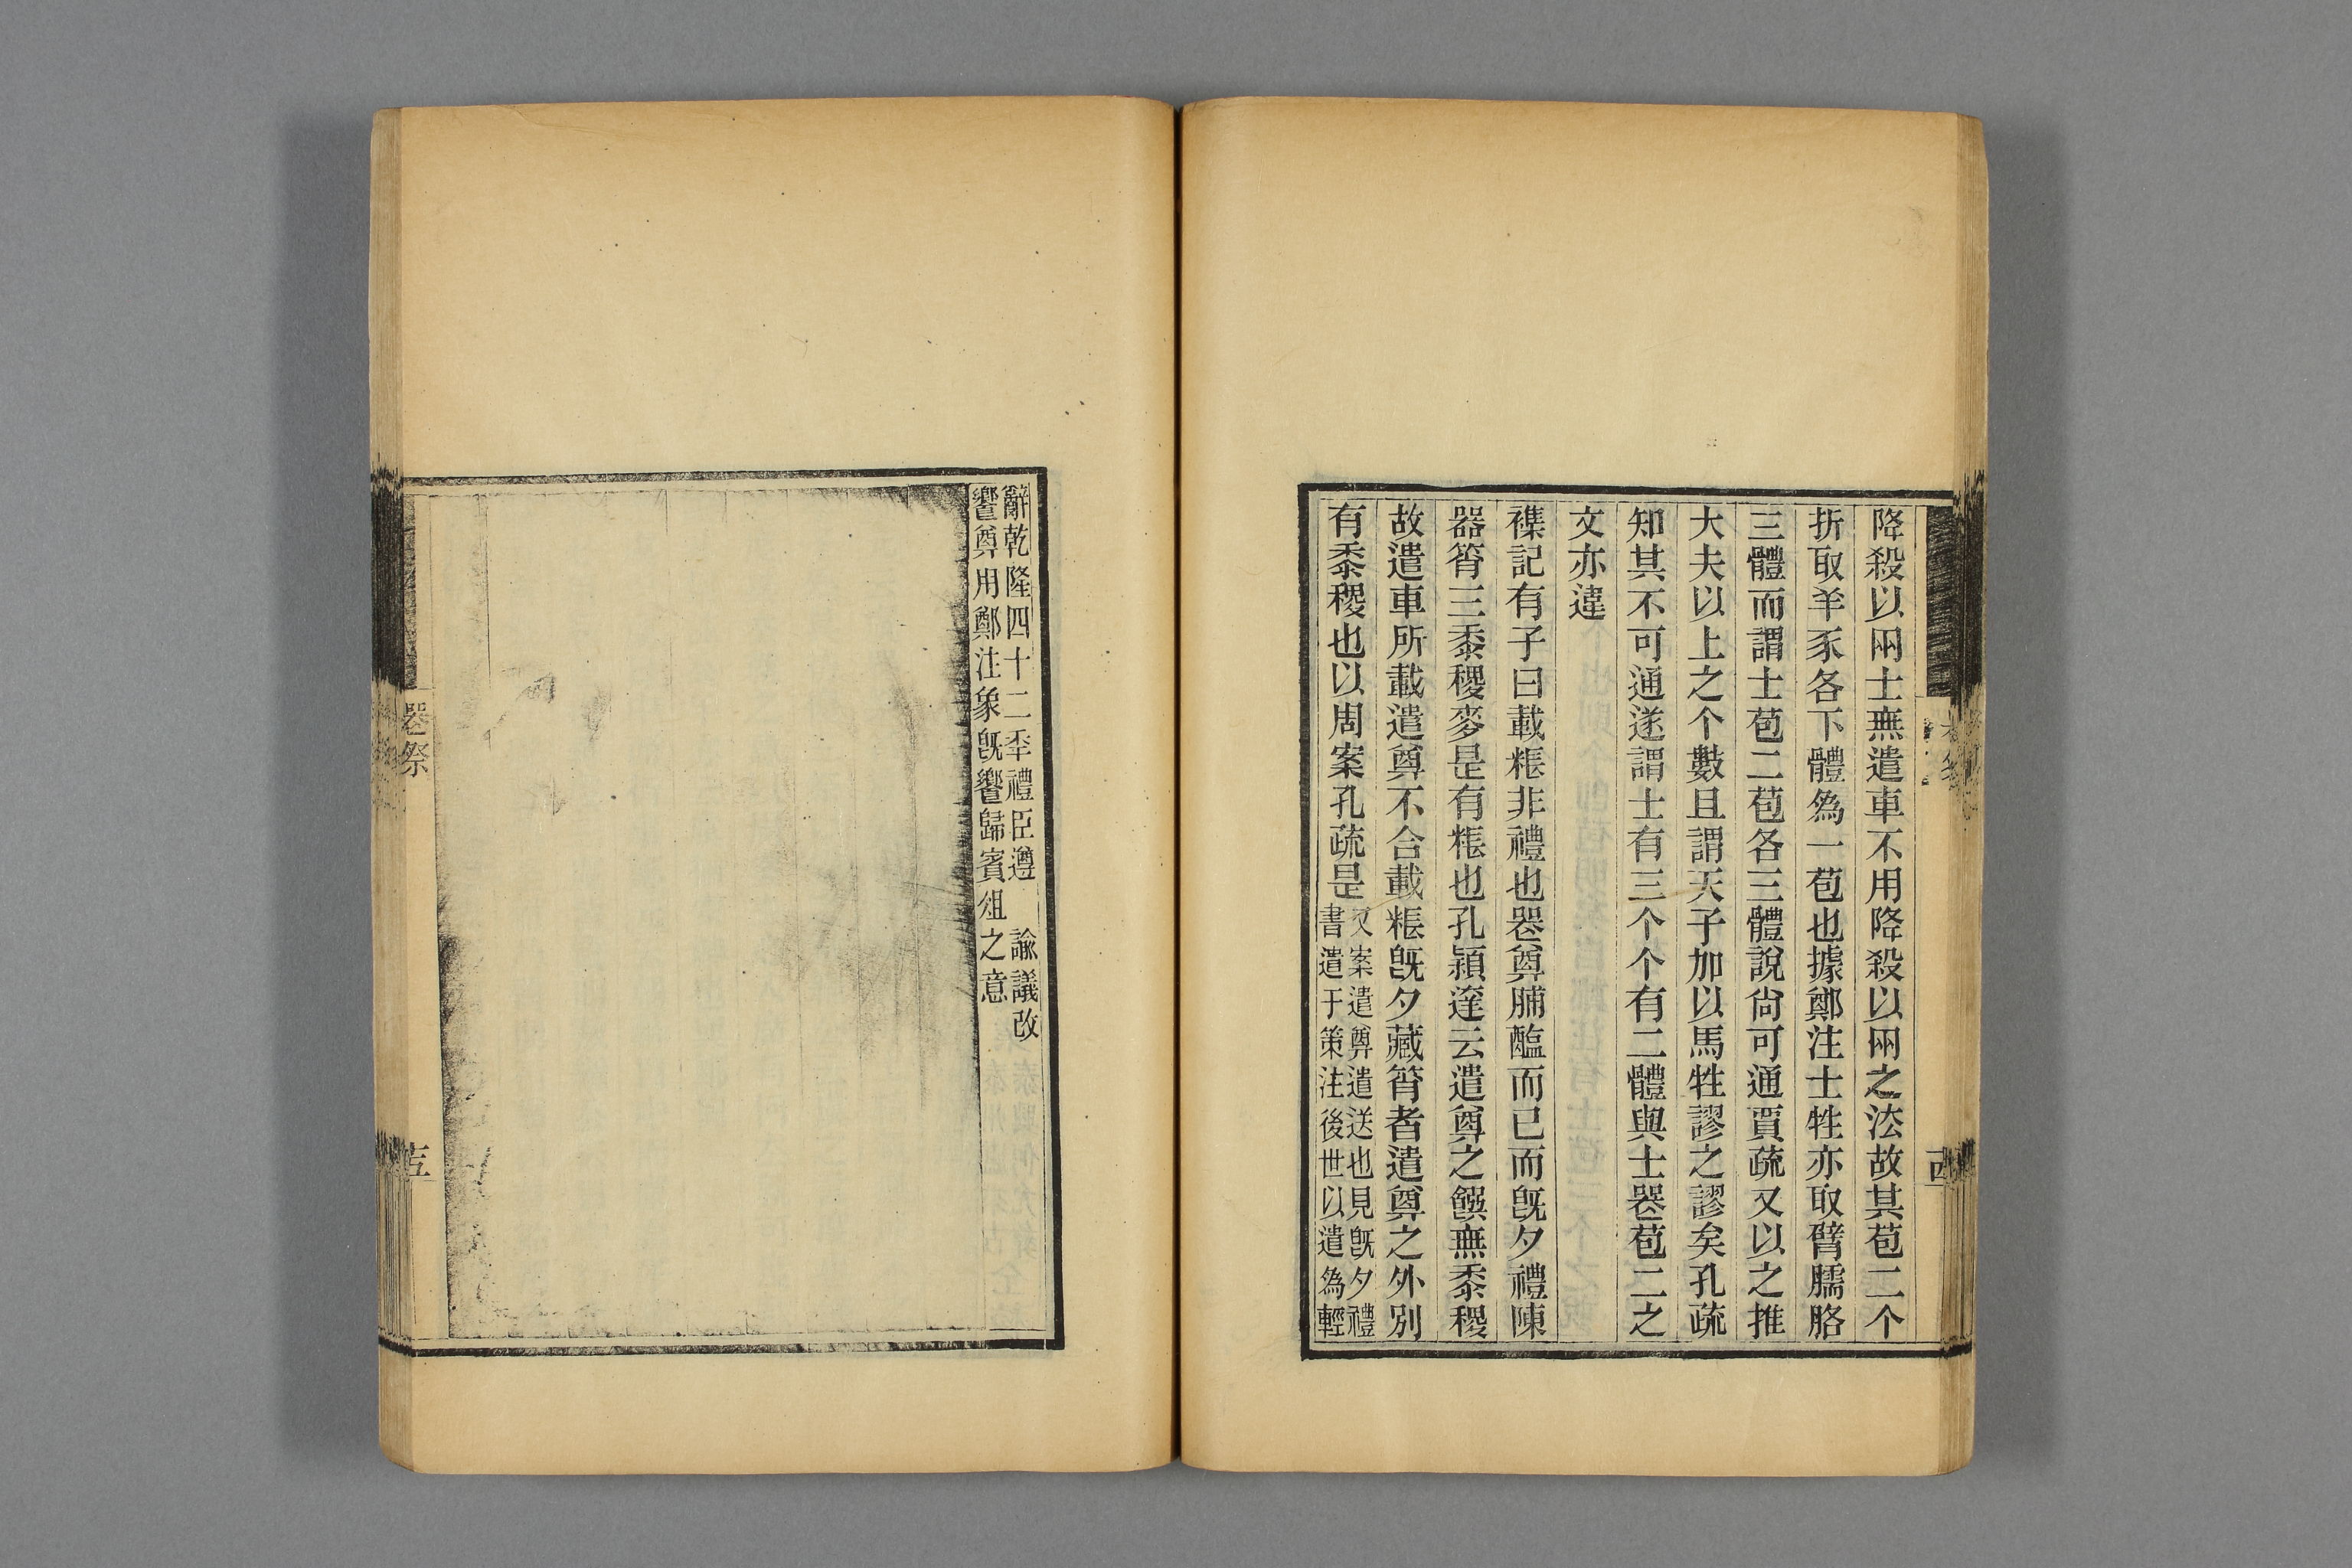 降殺以兩士無遣車不用降殺以兩之法故其苞二个
折取羊豕各下體為一苞也據鄭注士牲亦取臂臑胳
三體而謂士苞二苞各三體說尙可通賈疏又以之推
大夫以上之个數且謂天子加以馬牲謬之謬矣孔疏
知其不可通遂謂士有三个个有二體與士器苞二之
文亦違
襍記有子曰載粻非禮也器奠脯醢而已而旣夕禮陳
器筲三黍稷麥是有粻也孔穎達云遣奠之饌無黍稷
故遣車所載遣奠不合載粻旣夕藏筲者遣奠之外別
有黍稷也以周案孔疏是
又案遣奠遣送也見旣夕禮
書遣于策注後世以遣為輕
辭乾隆四十二秊禮臣遵　諭議改
饗奠用鄭注象旣饗歸賓俎之意
器祭